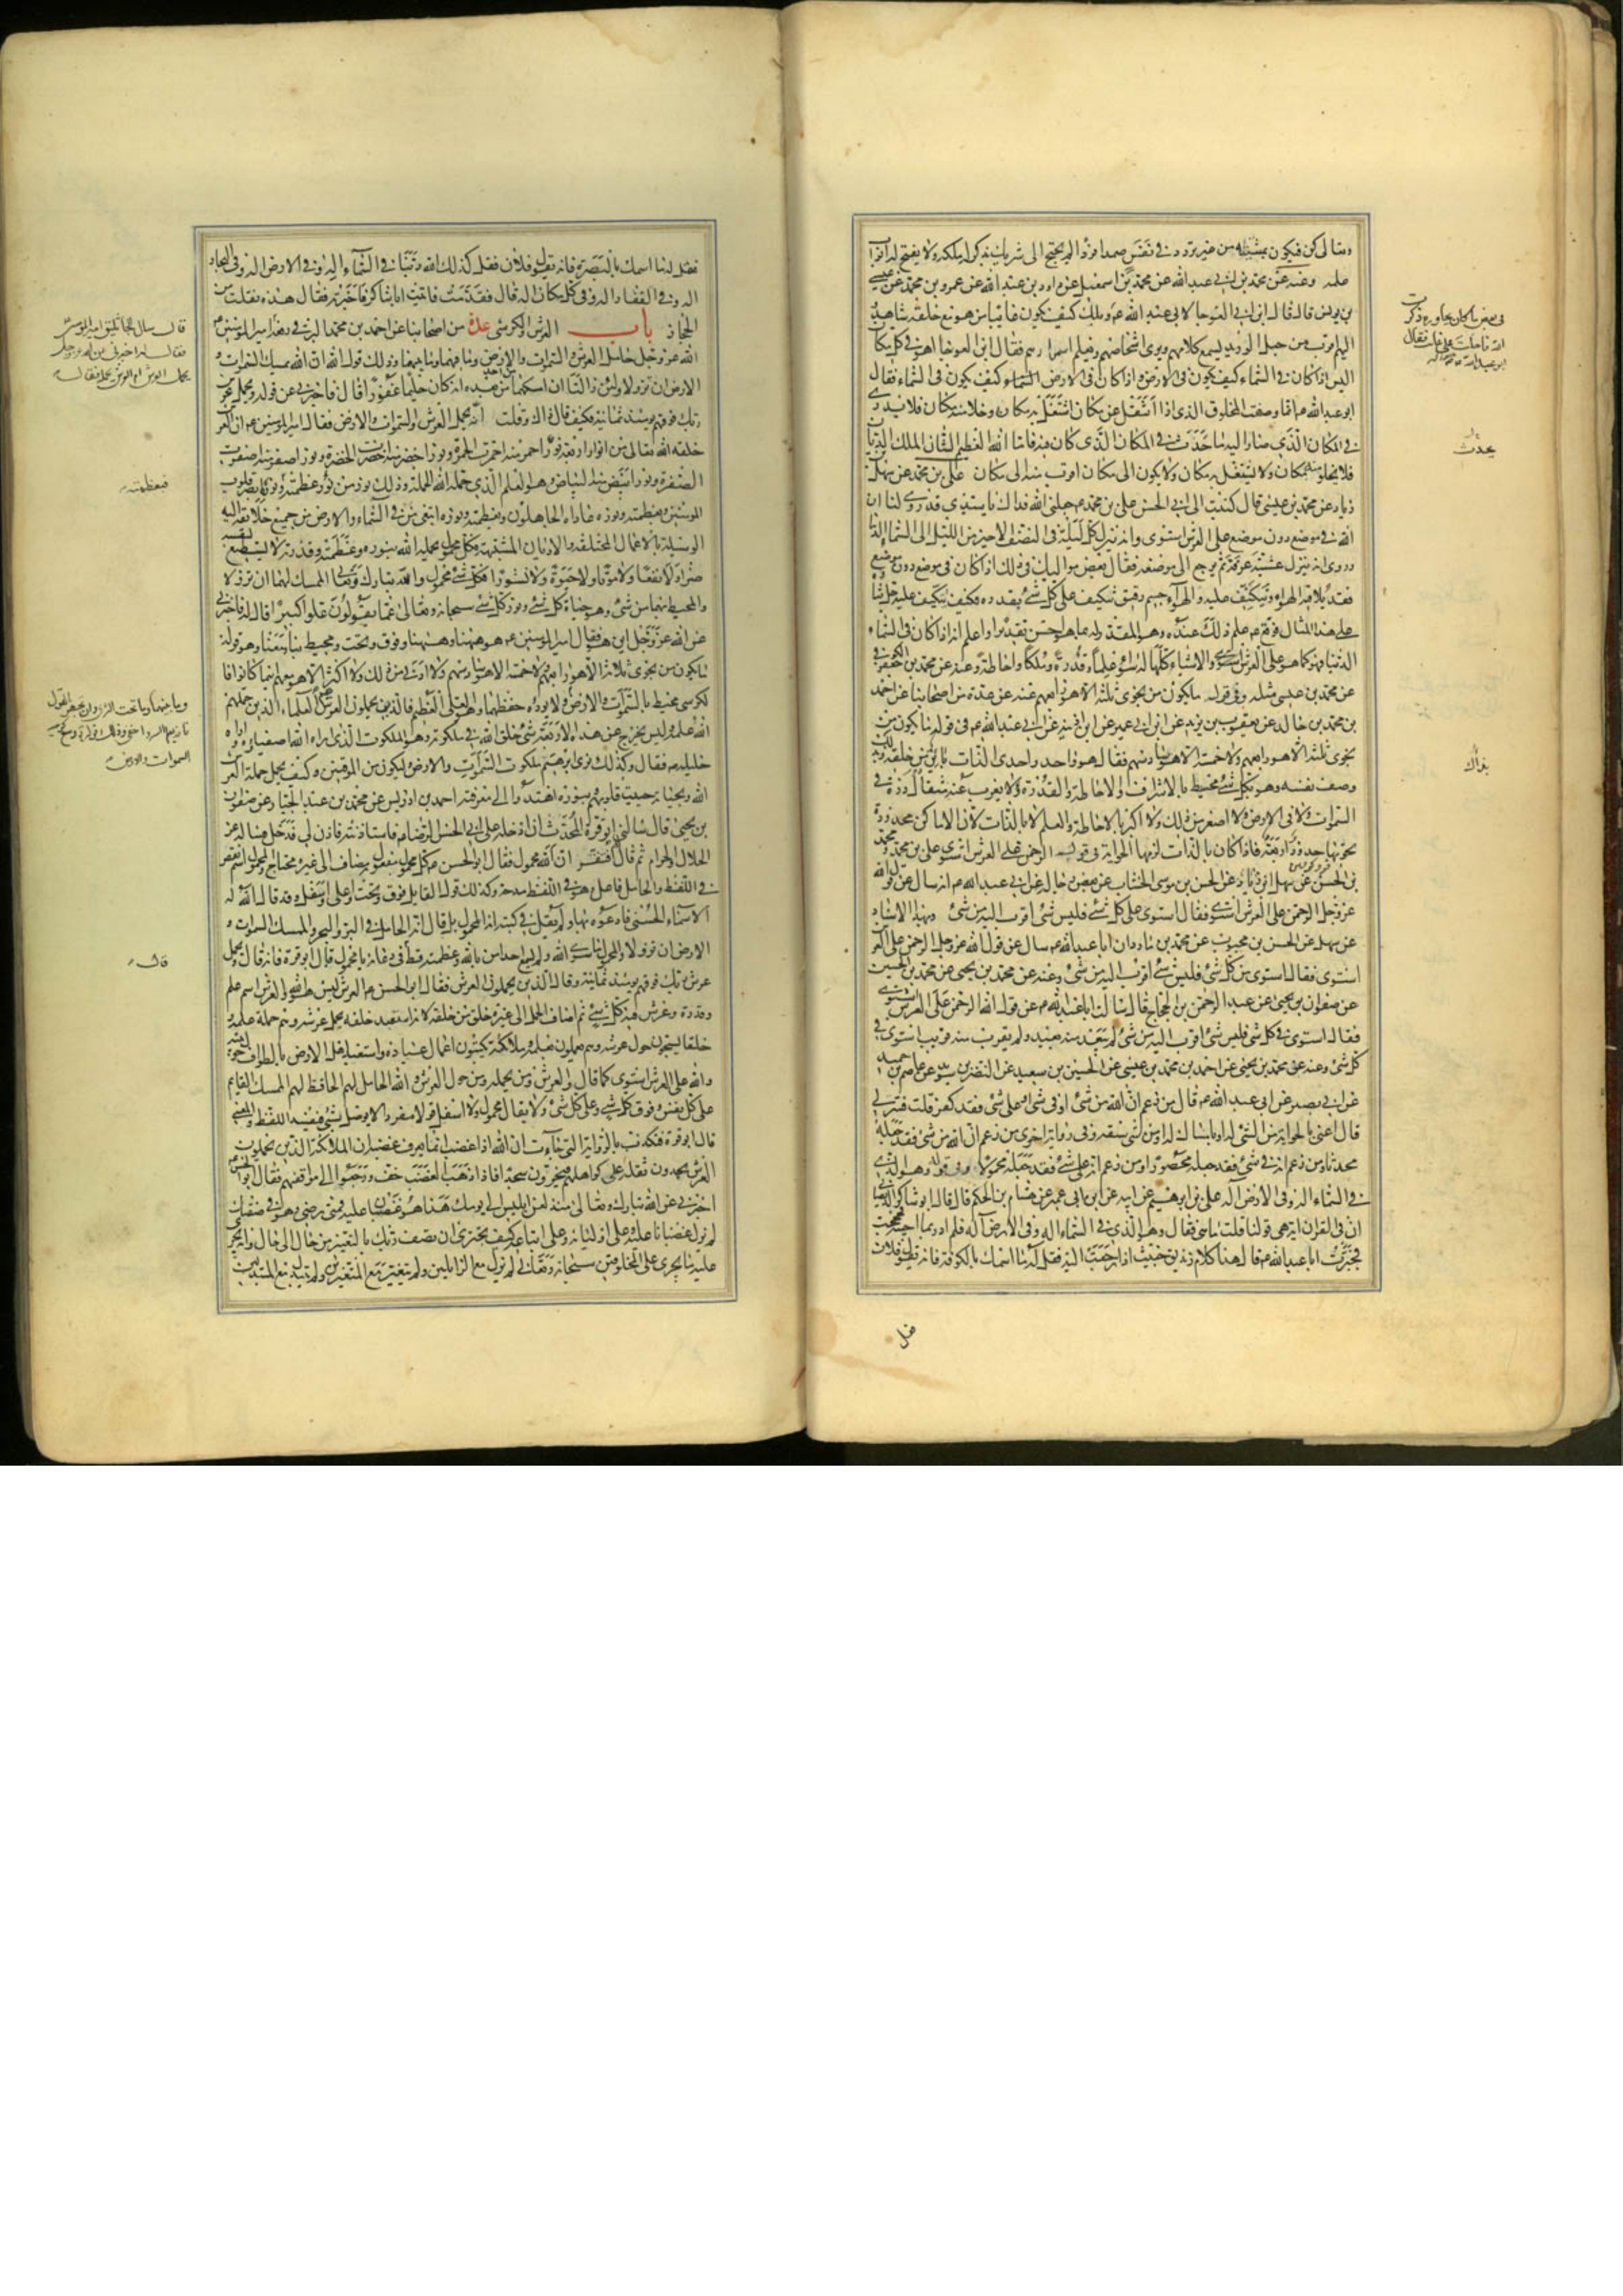 وتعالى كن فيكون بمشيته من غير تردد في نفس صمدا فردا لم يحتج الى شريك يذكر له ملكه ولا يفتح له ابواب
علمه وعنه عن محمد بن ابي عبد الله عن محمد بن اسمعيل عن داود بن عبد الله عن عمرو بن محمد عن عيسى
بن يونس قال قال ابن ابي العوجا لابي عبد الله ع ويلك كيف يكون غايبا من هو مع خلقه شاهد
اليهم اقرب من حبل الوريد يسمع كلامهم ويرى اشخاصهم ويعلم اسرارهم فقال ابن ابي العوجا اهو في كل مكان
اليس اذا كان في السماء كيف يكون في الارض واذا كان في الارض كيف يكون في السماء فقال
ابو عبد الله ع انما وصفت المخلوق الذي اذا انتقل عن مكان اشتغل به مكان وخلا منه مكان فلا يدري
في المكان الذي صار اليه ما حدث في المكان الذي كان فيه فاما الله العظيم الشان الملك الديان
فلا يخلو منه مكان ولا يشتغل به مكان ولا يكون الى مكان اقرب منه الى مكان علي بن محمد عن سهل بن
زياد عن محمد بن عيسى قال كتبت الى ابي الحسن علي بن محمد ع جعلني الله فداك يا سيدي قد روي لنا ان
الله في موضع دون موضع على العرش استوى وانه ينزل كل ليلة في النصف الاخير من الليل الى السماء الدنيا
وروي انه ينزل عشية عرفة ثم يرجع الى موضعه فقال بعض مواليك في ذلك اذا كان في موضع دون موضع
فقد يلاقيه الهواء ويتكنف عليه والهواء جسم رقيق يتكنف على كل شئ بقدره فكيف يتكنف عليه جل ثناؤه
على هذا المثال فوقع ع علم ذلك عنده وهو المقدر له بما هو احسن تقديرا واعلم انه اذا كان في السماء
الدنيا فهو كما هو على العرش والاشياء كلها له سواء علما وقدرة وملكا واحاطة وعنه عن محمد بن جعفر الكوفي
عن محمد بن عيسى مثله وفي قوله ما يكون من نجوى ثلثة الا هو رابعهم عنه عن عدة من اصحابنا عن احمد
بن محمد بن خالد عن يعقوب بن يزيد عن ابن ابي عمير عن ابن اذينه عن ابي عبد الله ع في قوله ما يكون من
نجوى ثلثة الا هو رابعهم ولا خمسة الا هو سادسهم فقال هو واحد واحدي الذات باين من خلقه وبذلك
وصف نفسه وهو بكل شئ محيط بالاشراف والاحاطة والقدرة ولا يعزب عنه مثقال ذرة في
السموات ولا في الارض ولا اصغر من ذلك ولا اكبر بالاحاطة والعلم لا بالذات لان الاماكن محدودة
تحويها حدود اربعة فاذا كان بالذات لزمها الحواية في قوله الرحمن على العرش استوى علي بن محمد ومحمد
بن الحسن عن سهل بن زياد عن الحسن بن موسى الخشاب عن بعض رجاله عن ابي عبد الله ع انه سال عن قول الله
عز وجل الرحمن على العرش استوى فقال استوى على كل شئ فليس شئ اقرب اليه من شئ وبهذا الاسناد
عن سهل عن الحسن بن محبوب عن محمد بن مادر ان ابا عبد الله ع سال عن قول الله عز وجل الرحمن على العرش
استوى فقال استوى من كل شئ فليس شئ اقرب اليه من شئ وعنه عن محمد بن يحيى عن محمد بن الحسين
عن صفوان بن يحيى عن عبد الرحمن بن الحجاج قال سالت ابا عبد الله ع عن قول الله الرحمن على العرش استوى
فقال استوى في كل شئ فليس شئ اقرب اليه من شئ لم يبعد منه بعيد ولم يقرب منه قريب استوى في
كل شئ وعنه عن محمد بن يحيى عن احمد بن محمد بن عيسى عن الحسين بن سعيد عن النضر بن سويد عن عاصم بن حميد
عن ابي بصير عن ابي عبد الله ع قال من زعم ان الله من شئ او في شئ او على شئ فقد كفر قلت فسر لي
قال اعني بالحواية من الشئ له او بامساك له او من شئ سبقه وفي رواية اخرى من زعم ان الله من شئ فقد جعله
محدثا ومن زعم انه في شئ فقد جعله محصورا ومن زعم انه على شئ فقد جعله محمولا وفي قوله وهو الذي
في السماء اله وفي الارض اله علي بن ابرهيم عن ابيه عن ابن ابي عمير عن هشام بن الحكم قال قال ابو شاكر الديصاني
ان في القران اية هي قولنا قلت ما هي فقال وهو الذي في السماء اله وفي الارض اله فلم ادر بما اجيبه فحججت
فخبرت ابا عبد الله ع فقال هذا كلام زنديق خبيث اذا رجعت اليه فقل له ما اسمك بالكوفة فانه يقول فلان
فقل
في بعض ما كان يحاوره ذكرت
الله فاحلت على غايب فقال
ابو عبد الله
يحدث
بذلك
فقل له ما اسمك بالبصرة فانه يقول فلان فقل كذلك الله ربنا في السماء اله وفي الارض اله وفي البحار
اله وفي القفار اله وفي كل مكان اله قال فقدمت فاتيت ابا شاكر فاخبرته فقال هذه نقلت من
الحجاز باب العرش والكرسي عدة من اصحابنا عن احمد بن محمد البرقي رفعه امير المؤمنين ع
الله عز وجل حامل العرش والسموات والارض وما فيهما وما بينهما وذلك قول الله ان الله يمسك السموات و
الارض ان تزولا ولئن زالتا ان امسكهما من احد من بعده انه كان حليما غفورا قال فاخبرني عن قوله ويحمل عرش
ربك فوقهم يومئذ ثمانية فكيف قال ذاك وقلت انه يحمل العرش والسموات والارض فقال امير المؤمنين ع ان العرش
خلقه الله تعالى من انوار اربعة نور احمر منه احمرت الحمرة ونور اخضر منه اخضرت الخضرة ونور اصفر منه اصفرت
الصفرة ونور ابيض منه البياض وهو العلم الذي حمله الله الحملة وذلك نور من نور عظمته ونوره ابصر قلوب
المومنين وبعظمته ونوره عاداه الجاهلون وبعظمته ونوره ابتغى من في السماء والارض من جميع خلايقه اليه
الوسيلة بالاعمال المختلفة والاديان المشتبهة فكل محمول يحمله الله بنوره وعظمته وقدرته لا يستطيع لنفسه
ضرا ولا نفعا ولا موتا ولا حيوة ولا نشورا فكل شئ محمول والله تبارك وتعالى الممسك لهما ان تزولا
والمحيط بهما من شئ وهو حياة كل شئ ونور كل شئ سبحانه وتعالى عما يقولون علوا كبيرا قال له فاخبرني
عن الله عز وجل اين هو فقال امير المومنين ع هو ههنا وههنا وفوق وتحت ومحيط بنا ومعنا وهو قوله
ما يكون من نجوى ثلاثة الا هو رابعهم ولا خمسة الا هو سادسهم ولا ادنى من ذلك ولا اكثر الا هو معهم اينما كانوا فا
لكرسي محيط بالسموات والارض ولا يؤده حفظهما وهو العلي العظيم فالذين يحملون العرش هم العلماء الذين حملهم
الله علمه وليس يخرج عن هذه الاربعة شئ خلق الله في ملكوته وهو الملكوت الذي اراه الله اصفياءه واراه
خليله ع فقال وكذلك نري ابرهيم ملكوت السموات والارض وليكون من الموقنين وكيف يحمل حملة العرش
الله وبحياته حييت قلوبهم وبنوره اهتدوا الى معرفته احمد بن ادريس عن محمد بن عبد الجبار عن صفوان
بن يحيى قال سالني ابو قرة المحدث ان ادخله على ابي الحسن الرضا ع فاستاذنته فاذن لي فدخل فساله عن
الحلال والحرام ثم قال افتقر ان الله محمول فقال ابو الحسن ع كل محمول مفعول به مضاف الى غيره محتاج والمحمول اسم نقص
في اللفظ والحامل فاعل وهو في اللفظ مدحة وكذلك قول القايل فوق وتحت واعلى واسفل وقد قال الله له
الاسماء الحسنى فادعوه بها ولم يقل في كتبه انه المحمول بل قال انه الحامل في البر والبحر والممسك السموات و
الارض ان تزولا والمحمول ما سوى الله ولم يسمع احد امن بالله وعظمته قط قال في دعائه يا محمول قال ابو قرة فانه قال ويحمل
عرش ربك فوقهم يومئذ ثمانية وقال الذين يحملون العرش فقال ابو الحسن ع العرش ليس هو الله والعرش اسم علم
وقدرة وعرش فيه كل شئ ثم اضاف الحمل الى غيره خلق من خلقه لانه استعبد خلقه بحمل عرشه وهم حملة علمه و
خلقا يسبحون حول عرشه وهم يعملون بعلمه وملائكة يكتبون اعمال عباده واستعبد اهل الارض بالطواف حول بيته
والله على العرش استوى كما قال والعرش ومن يحمله ومن حول العرش والله الحامل لهم الحافظ لهم الممسك القايم
على كل نفس وفوق كل شئ وعلى كل شئ ولا يقال محمول ولا اسفل قولا مفردا لا يوصل بشئ فيفسد اللفظ والمعنى
قال ابو قرة فتكذب بالرواية التي جاءت ان الله اذا غضب انما يعرف غضبه ان الملائكة الذين يحملون
العرش يجدون ثقله على كواهلهم فيخرون سجدا فاذا ذهب الغضب خف ورجعوا الى مواقفهم فقال ابو الحسن
اخبرني عن الله تبارك وتعالى منذ لعن ابليس الى يومك هذا هو غضبان عليه فمتى رضي وهو في صفتك
لم يزل غضبانا عليه وعلى اوليائه وعلى اتباعه كيف تجتري ان تصف ربك بالتغيير من حال الى حال وانه يجري
عليه ما يجري على المخلوقين سبحانه وتعالى لم يزل مع الزايلين ولم يتغير مع المتغيرين ولم يتبدل مع المتبدلين
قال سال الجاثليق امير المومنين
فقال له اخبرني عن الله عز وجل
يحمل العرش ام العرش يحمله فقال
فبعظمته
وما بينهما وما تحت الثرى وان تجهر بالقول
فانه يعلم السر واخفى وذلك قوله وسع كرسيه
السموات والارض
قال